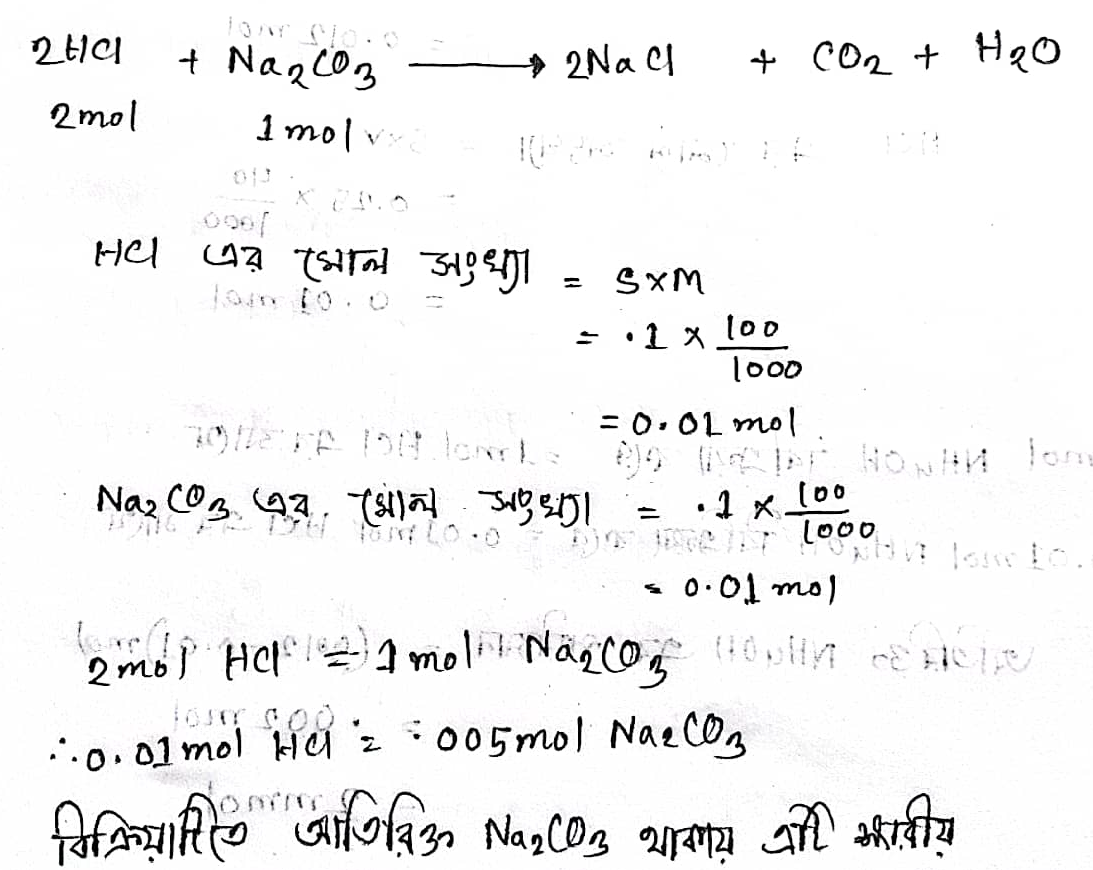 2HCl + Na₂CO₃ ⟶ 2NaCl + CO₂ + H₂O
2mol 1mol
HCl এর মোল সংখ্যা = S×M
= .1 × 100/1000
= 0.01 mol
Na₂CO₃ এর মোল সংখ্যা = .1 × 100/1000
= 0.01 mol
2mol HCl = 1 mol Na₂CO₃
∴ 0.01 mol HCl = .005mol Na₂CO₃
বিক্রিয়াটিতে অতিরিক্ত Na₂CO₃ থাকায় এটি ক্ষারীয়